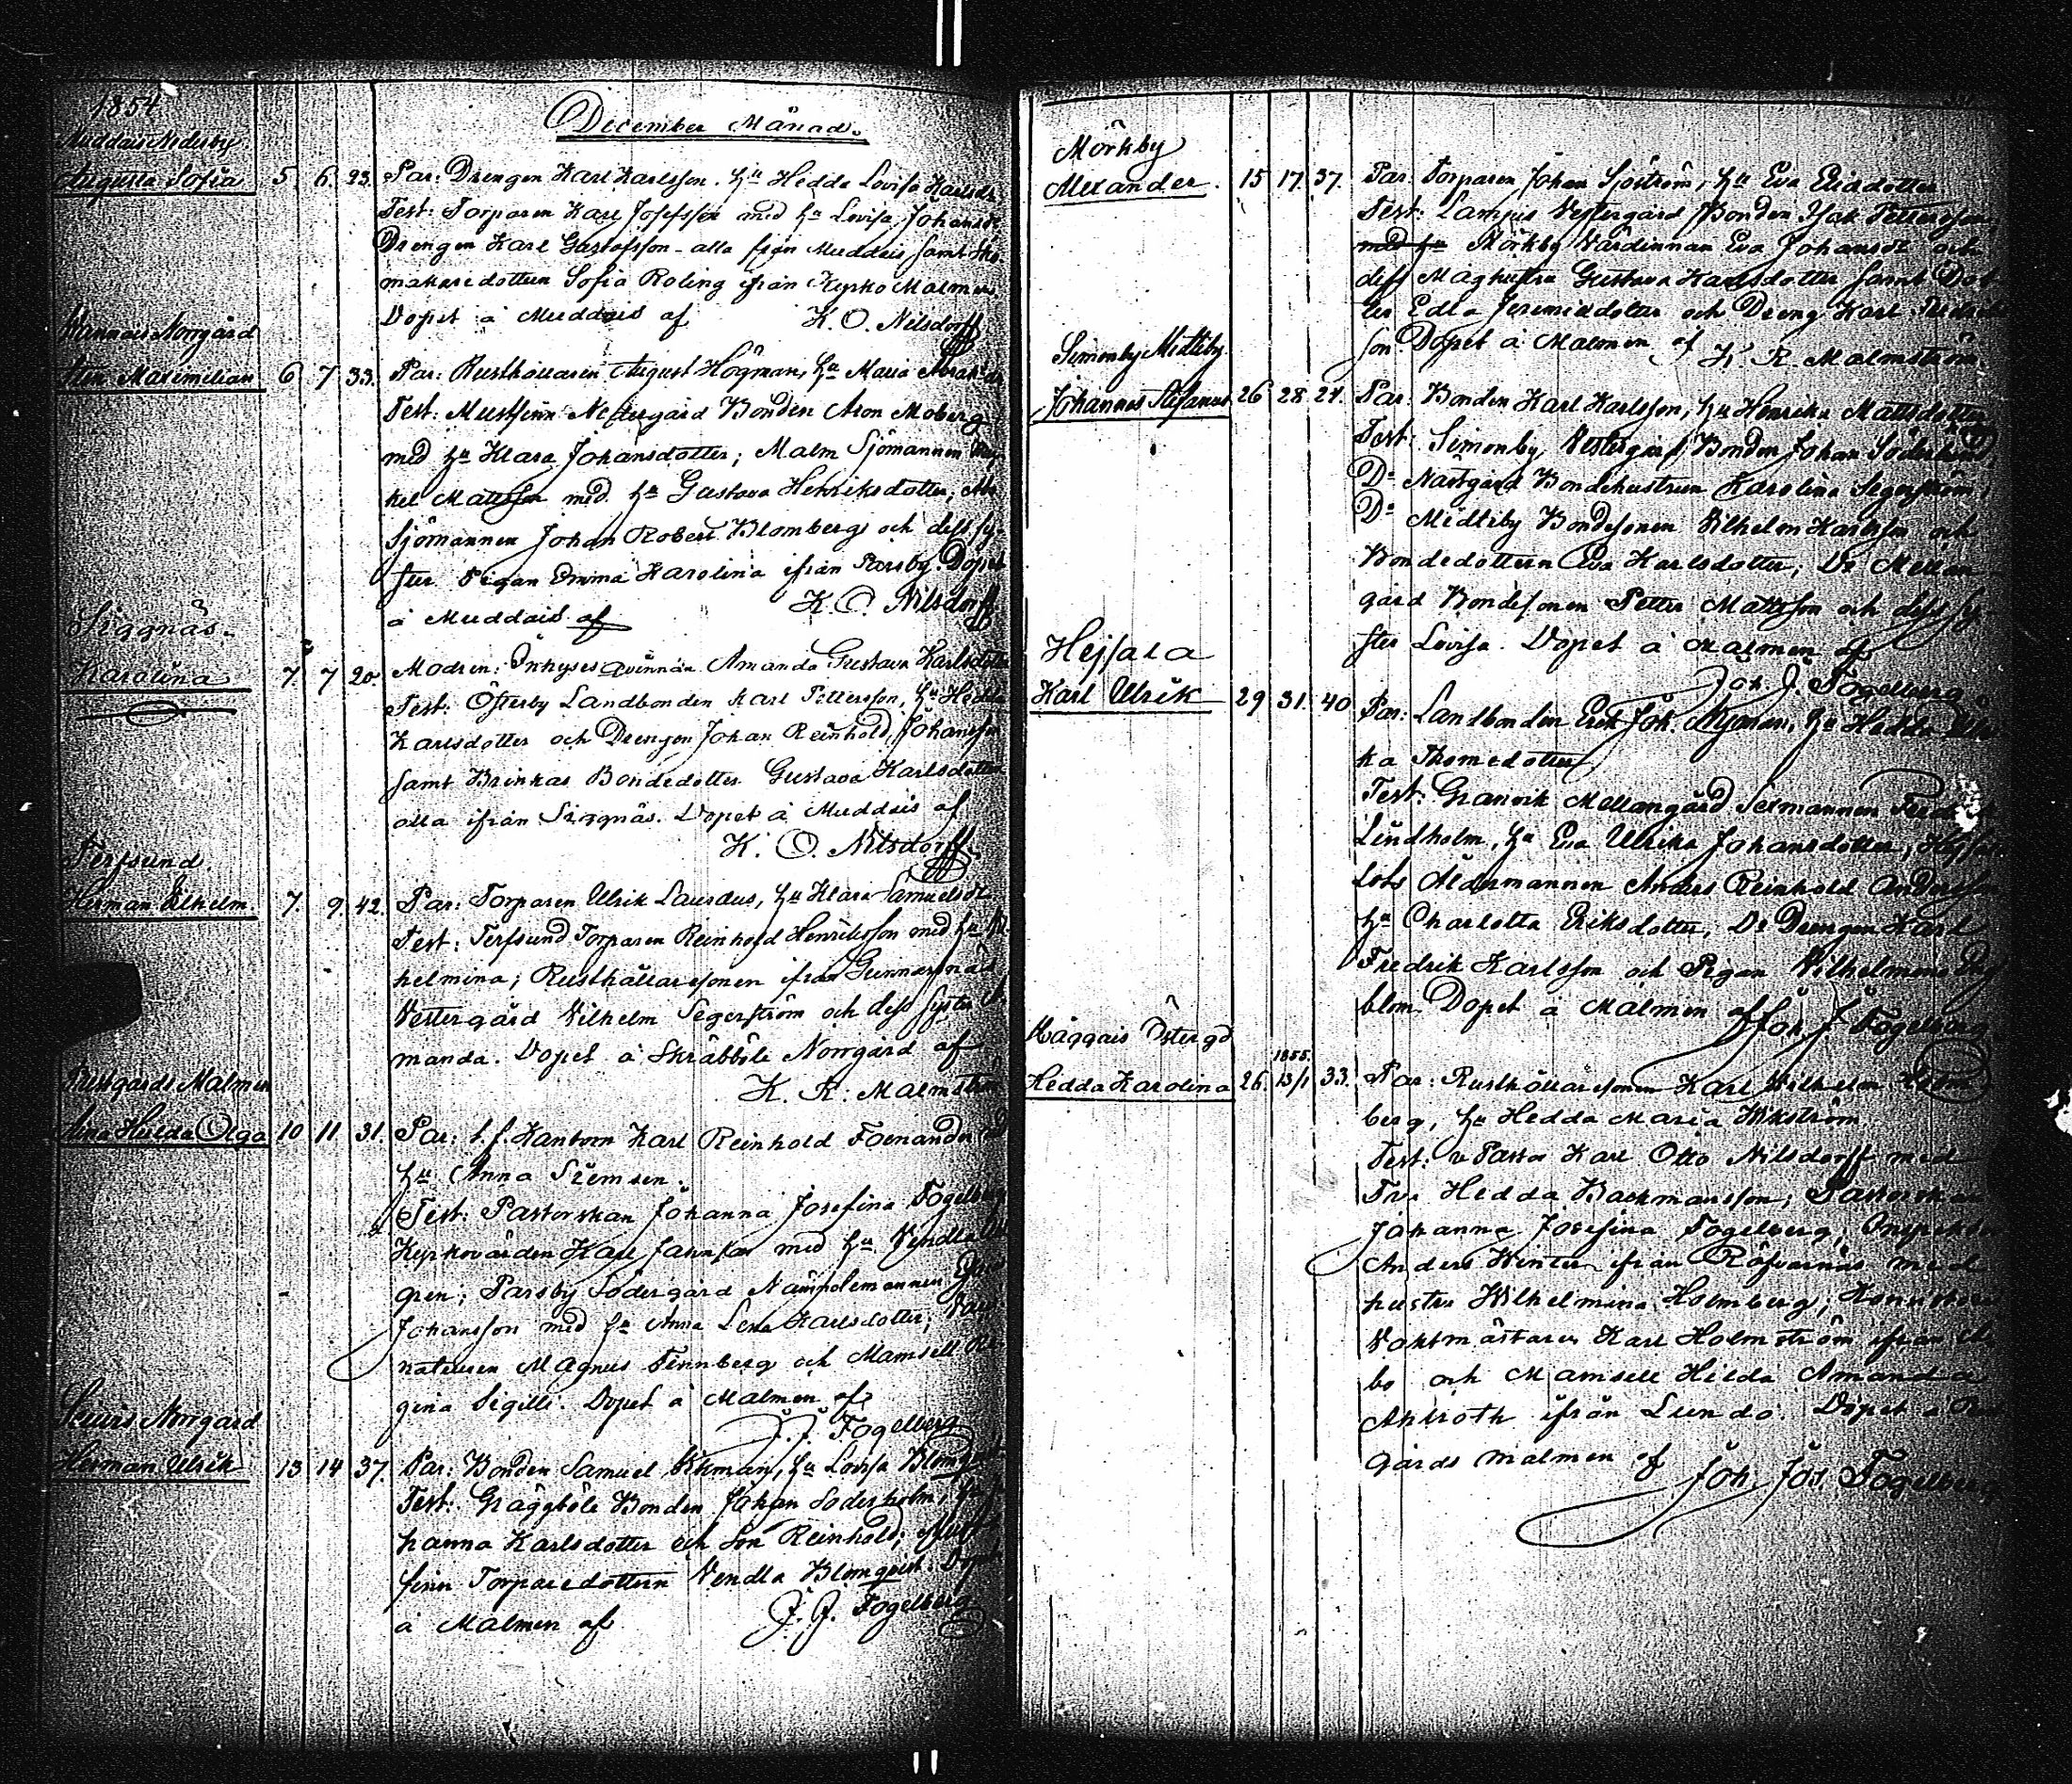 1854
December Månad.
Muddais Nederby
Augusta Sofia 5. 6. 23. Par: Drengen Karl Karlsson. Hu Hedda Lovisa Karlsdr
Test: Torparen Karl Josefsson med Hu Lovisa Johansdr
Drengen Karl Gustafsson - alla från Muddais samt Sko
makaredottern Sofia Roling ifrån Kyrko Malmen.
Dopet å Muddais af K. O. Nilsdorff
Norrgård
Maximilian 6 7 33. Par: Rusthållaren August Högman, Hu Maria
Test: Mustfinn Nedergård Bonden Aron Moberg
med Hu Klara Johansdotter; Malm Sjömannen
kel Mattsson med Hu Gustava Henriksdotter,
Sjömannen Johan Robert Blomberg och dess sy-
ster Pigan Emma Karolina ifrån Parsby. Dopet
å Muddais af K. O. Nilsdorff
Siggnäs.
Karolina 7. 7 20. Modren: Inhyses qvinnan Amanda Gustava Karlsdotter
Test: Österby Landbonden Karl Pettersson, Hu Hedda
Karlsdotter och Drengen Johan Reinhold Johansson
samt Brinkas Bondedotter Gustava Karlsdotter
alla ifrån Siggnäs. Dopet å Muddais af
K. O. Nilsdorff
Terfsund.
Herman Vilhelm. 7. 9. 42. Par: Torparen Ulrik Laurdus, Hu Klara Samuelsdr
Test: Terfsund Torparen Reinhold Henriksson med Hu
helmina; Rusthållaresonen ifrån Gunnarsnäs
Vestergård Vilhelm Segerström och dess syster
manda. Dopet å Skräbböle Norrgård af
K. R. Malmström
Prestgårds Malmen
Hilda Olga 10 11 31. Par: t. f. Kantorn Karl Reinhold Fornander
Hu Anna Siemsen.
Test: Pastorskan Johanna Josefina Fogelberg
Kyrkovärden Karl Jahnsson med Hu Vendla
gren; Parsby Södergård Nämndemannen
Johansson med Hu Anna Lena Karlsdotter;
naturen Magnus Finnberg och Mamsell Re-
gina Sigille. Dopet å Malmen af
J. J. Fogelberg
Norrgård
Herman Ulrik 13 14 37. Par: Bonden Samuel Öhman, Hu Lovisa
Test: Gräggböle Bonden Johan Söderholm,
hanna Karlsdotter och Son Reinhold;
finn Torparedottern Vendla Blomqvist. Dopet
å Malmen af J. J. Fogelberg
Mörkby
Alexander. 15 17. 37. Par: Torparen Johan Sjöström, Hu Eva Elisdotter
Test: Lampis Vestergård Bonden Isak Pettersson,
med Hu Mörkby Värdinnan Eva Johansdr och
dess Måghustru Gustava Karlsdotter samt Dot-
ter Edla Jeremiædotter och Dreng Karl
son. Dopet å Malmen af K. R. Malmström
Simonby Midtiby
Johannes Stefanus 26 28 24. Par: Bonden Karl Karlsson, Hu Henrika Mattsdotter
Test: Simonby Vestergård Bonden Johan Söderlund,
Do Nästgård Bondehustrun Karolina Segerström,
Do Midtiby Bondesonen Vilhelm Karlsson och
Bondedottern Eva Karlsdotter, Do Mellan-
gård Bondesonen Petter Mattsson och dess sy-
ster Lovisa. Dopet å Malmen af
Joh. J. Fogelberg.
Hejsala
Karl Ulrik 29 31. 40 Par: Landbonden Erik Joh. Nyman, Hu Hedda
ka Thomedotter
Test: Granvik Mellangård Sexmannen
Lindholm, Hu Eva Ulrika Johansdotter,
Lots Åldermannen Anders Reinhold Andersson
Hu Charlotta Eriksdotter, Do Drengen Karl
Fredrik Karlsson och Pigan Vilhelmina
blom. Dopet å Malmen af Joh. J. Fogelberg
Haggais Östergd
1855.
Hedda Karolina 26. 13/1 33. Par: Rusthållaresonen Karl Vilhelm
berg, Hu Hedda Maria Wikström
Test: v Pastor Karl Otto Nilsdorff med
Fru Hedda Backmansson; Pastorskan
Johanna Josefina Fogelberg;
Anders Winter ifrån Röfvarnäs med
hustru Wilhelmina Holmberg;
Vaktmästaren Karl Holmström ifrån
bo och Mamsell Hilda Amanda
Ahlroth ifrån Lundo. Dopet å
gårds malmen af Joh. Jos. Fogelberg